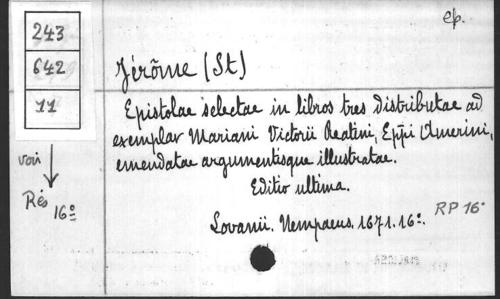 ep.
243
642
11
Jérôme (St)
Epistolae selectae in libros tres distributae ad
exemplar Mariani Victorii Reatini, Eppi Amerini,
emendatae argumentisque illustratae.
Editio ultima.
voir
Rés 16º
Lovanii. Nempaeus. 1671. 16º.
RP 16º